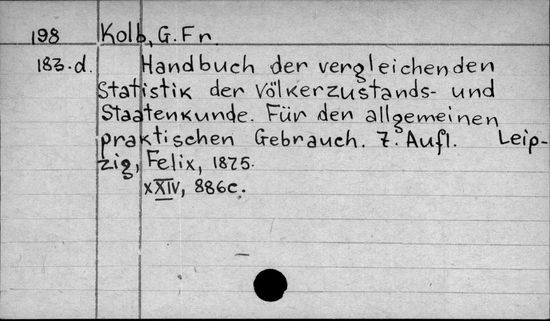 198 Kolb, G. Fr.
183.d. Handbuch der vergleichenden
Statistik der Völkerzustands- und
Staatenkunde. Für den allgemeinen
praktischen Gebrauch. 7. Aufl. Leip-
zig, Felix, 1875.
XXIV, 886c.